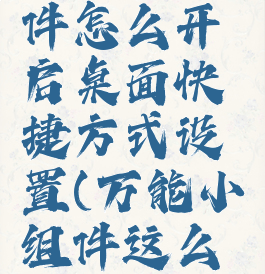 件怎么开
启桌面快
捷方式设
置(万能小
组件这么